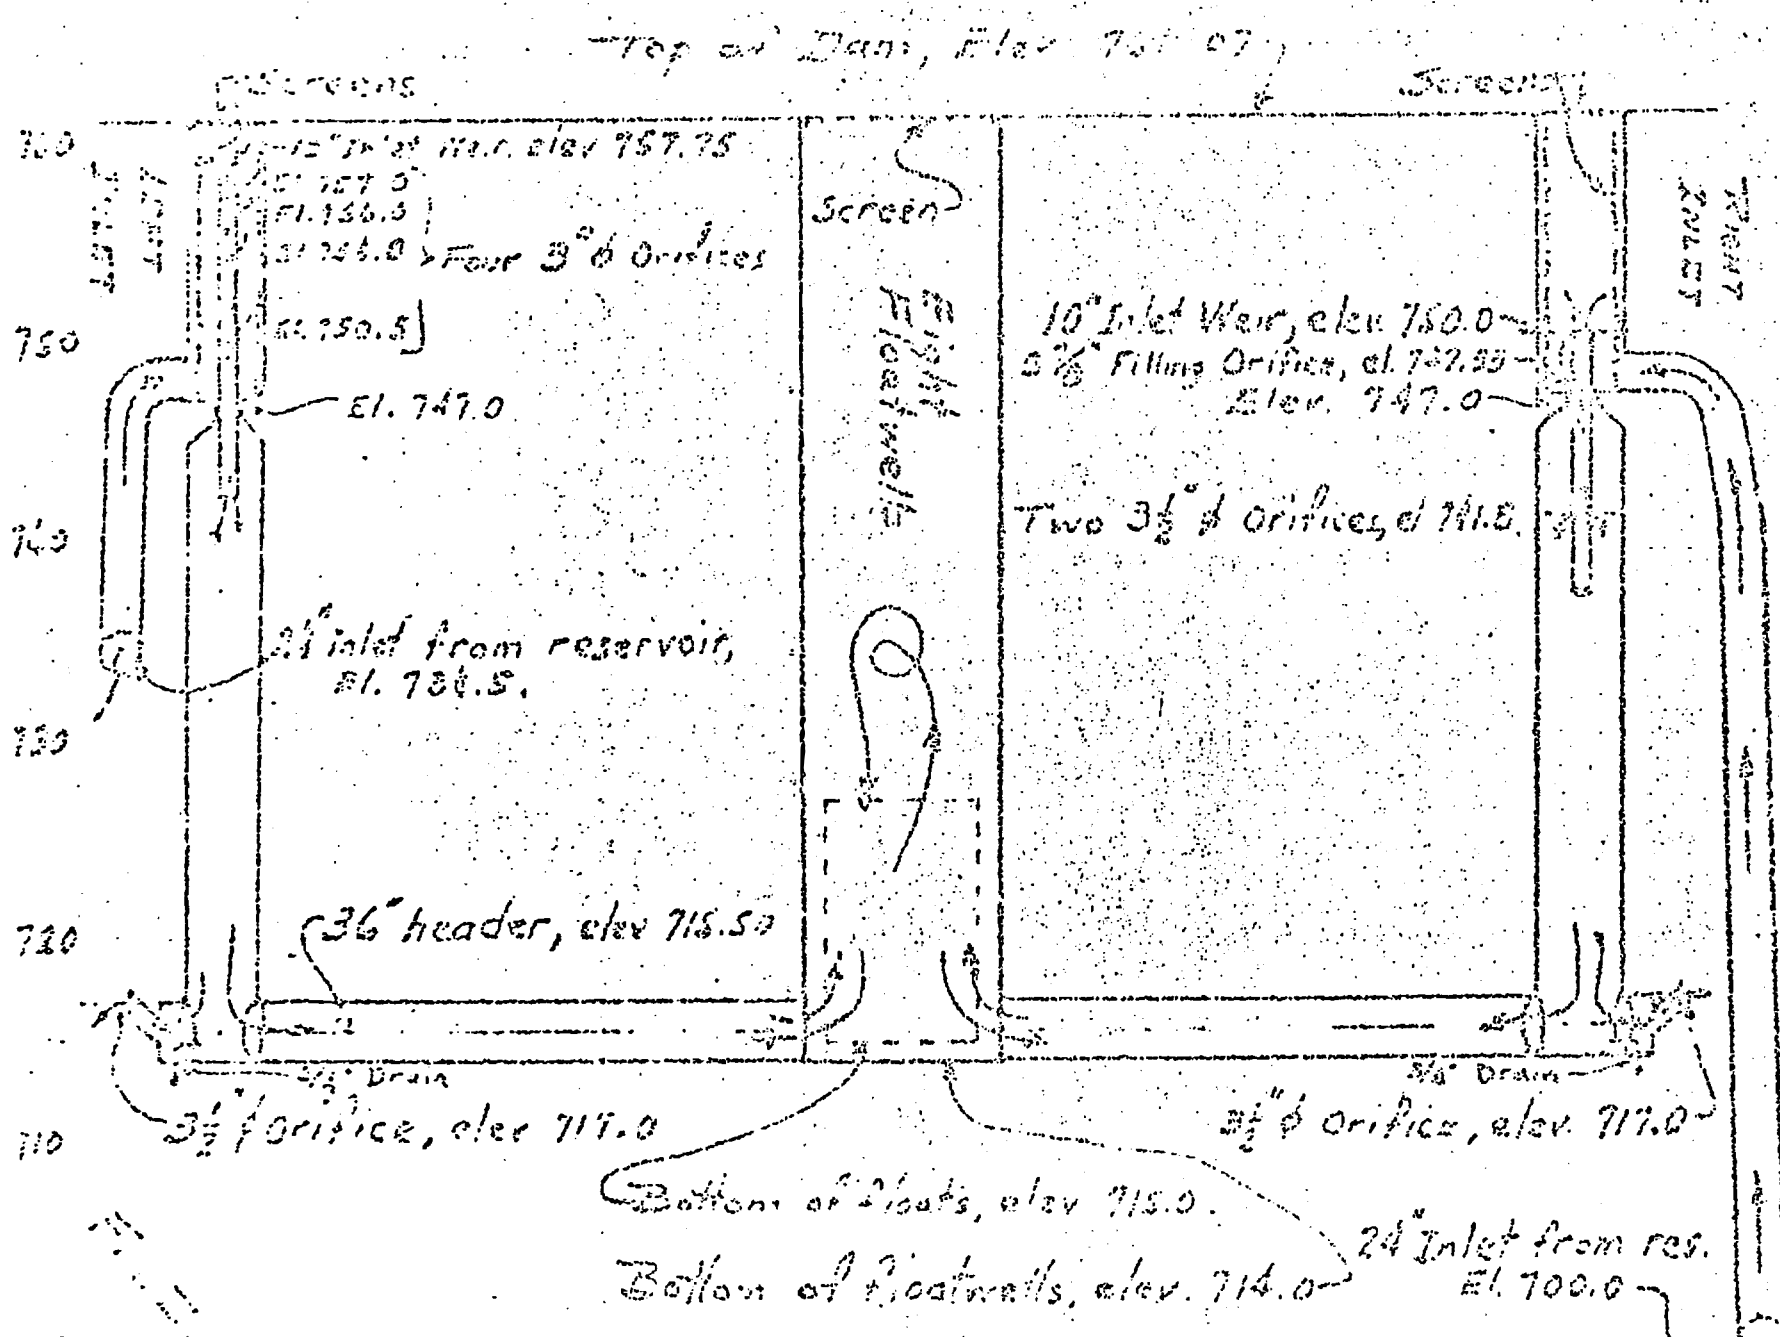 Top of Dam, Elev
Screens
Screens
760
12" Inlet Weir elev 757.75
El. 757.0
El. 756.0
Four 3" φ Orifices
El. 750.5
LEFT INLET
RIGHT INLET
Screen
Eight Floatwells
750
10" Inlet Weir, elev 750.0
Filling Orifice, el.
Elev. 747.0
El. 747.0
740
Two 3½" φ Orifices, el
24" inlet from reservoir,
El.
730
720
36" header, elev 715.50
Drain
Drain
3½" φ Orifice, elev 717.0
3½" φ Orifice, elev. 717.0
710
Bottom of floats, elev 715.0.
Bottom of floatwells, elev. 714.0
24" Inlet from res.
El. 700.0